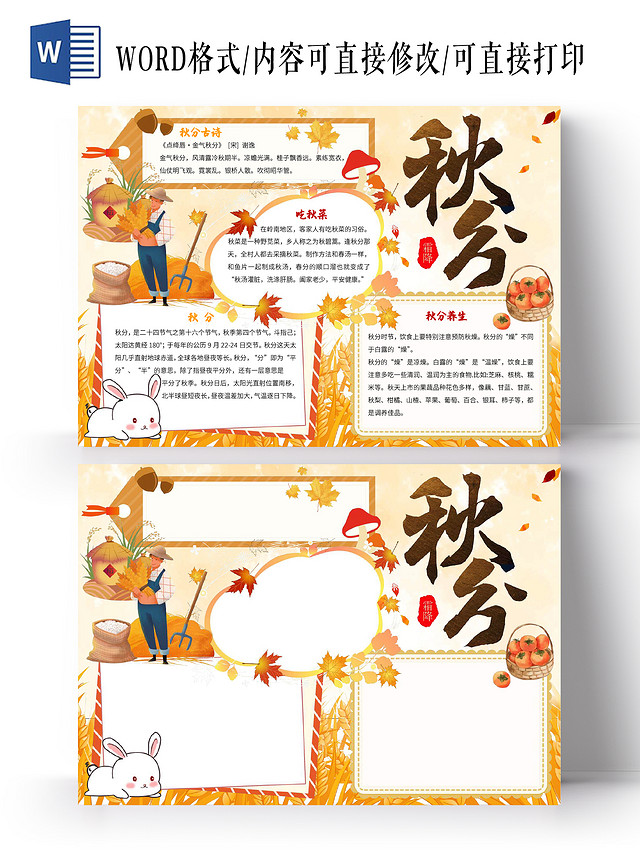 W
WORD格式/内容可直接修改/可直接打印
秋分古诗
《点绛唇·金气秋分》 [宋] 谢逸
金气秋分，风清露冷秋期半。凉蟾光满。桂子飘香远。素练宽衣，
仙仗明飞观。霓裳乱。银桥人散。吹彻昭华管。
吃秋菜
在岭南地区，客家人有吃秋菜的习俗。
秋菜是一种野苋菜，乡人称之为秋碧蒿。逢秋分那
天，全村人都去采摘秋菜。制作方法和春汤一样，
和鱼片一起制成秋汤，春分的顺口溜也就变成了
“秋汤灌脏，洗涤肝肠。阖家老少，平安健康。”
秋分
霜降
秋 分
秋分，是二十四节气之第十六个节气，秋季第四个节气。斗指己；
太阳达黄经 180°；于每年的公历 9 月 22-24 日交节。秋分这天太
阳几乎直射地球赤道，全球各地昼夜等长。秋分，“分”即为“平
分”、“半”的意思，除了指昼夜平分外，还有一层意思是
平分了秋季。秋分日后，太阳光直射位置南移，
北半球昼短夜长，昼夜温差加大，气温逐日下降。
秋分养生
秋分时节，饮食上要特别注意预防秋燥。秋分的“燥”不同
于白露的“燥”。
秋分的“燥”是凉燥。白露的“燥”是“温燥”，饮食上要
注意多吃一些清润、温润为主的食物，比如:芝麻、核桃、糯
米等。秋天上市的果蔬品种花色多样，像藕、甘蓝、甘蔗、
秋梨、柑橘、山楂、苹果、葡萄、百合、银耳、柿子等，都
是调养佳品。
秋分
霜降